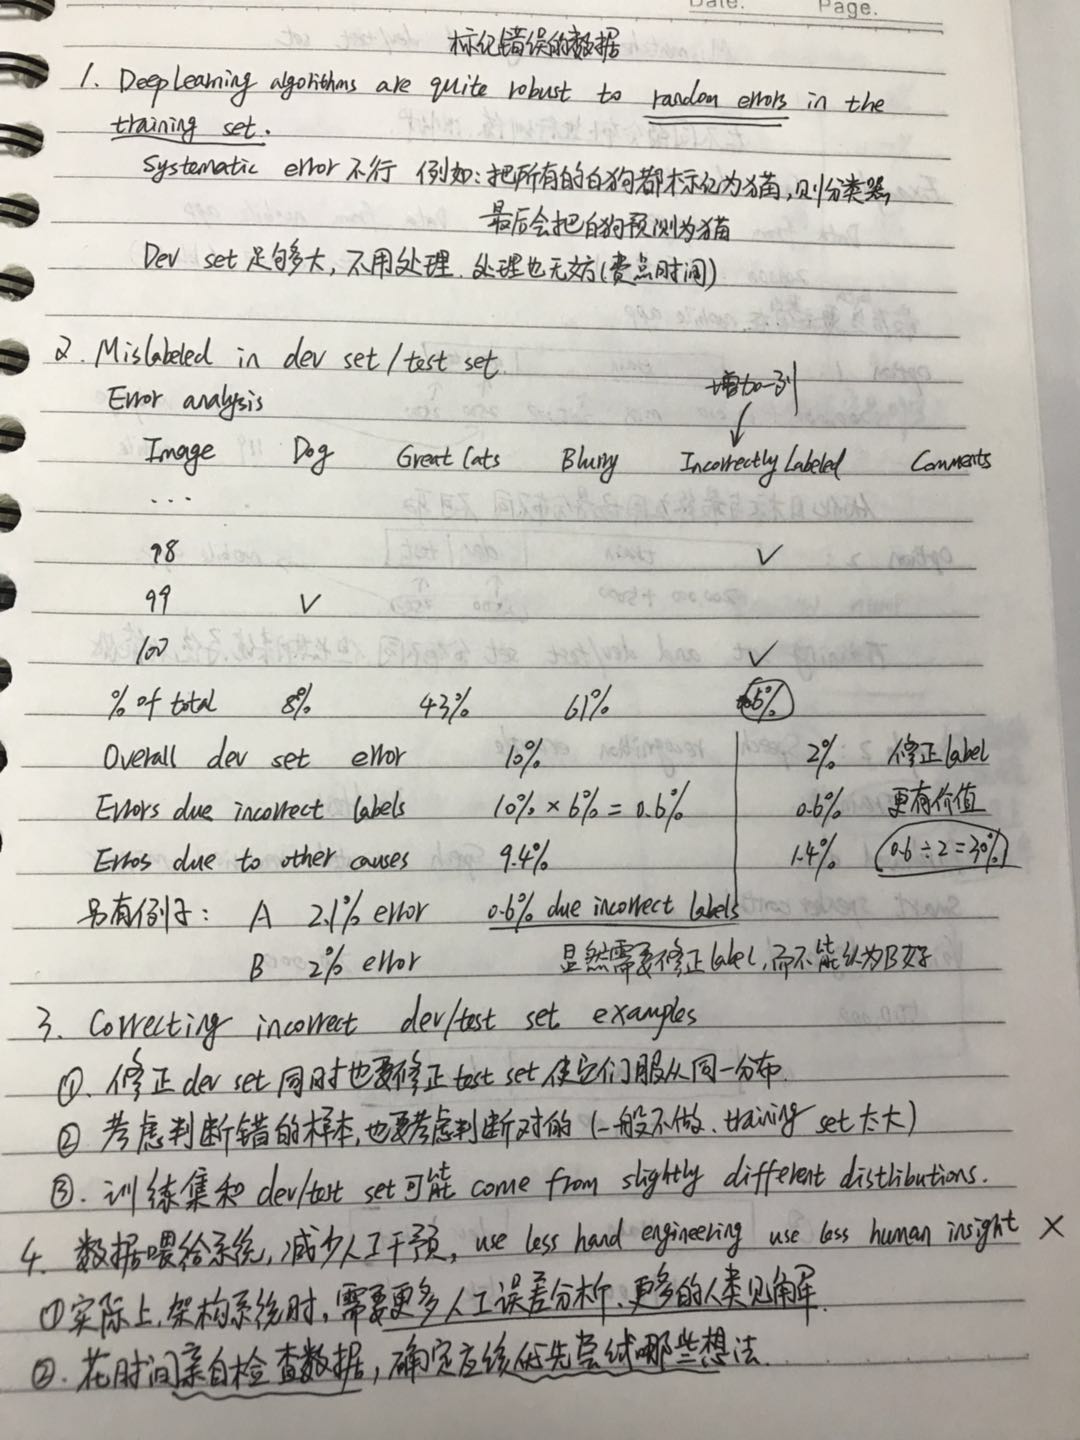 Date.
Page.
标记错误的数据
1. Deep Learning algorithms are quite robust to random errors in the
training set.
Systematic error 不行 例如:把所有的白狗都标记为猫,则分类器,
最后会把白狗预测为猫
Dev set 足够多大,不用处理.处理也无妨(费点时间)
2. Mislabeled in dev set/test set
Error analysis
增加一列
Image Dog Great Cats Blurry Incorrectly Labeled Comments
...
98 ✓
99 ✓
100 ✓
% of total 8% 43% 61% 6%
Overall dev set error 10% 2% 修正label
Errors due incorrect labels 10% × 6% = 0.6% 0.6% 更有价值
Erros due to other causes 9.4% 1.4% 0.6÷2=30%
另有例子: A 2.1% error 0.6% due incorrect labels
B 2% error 显然需要修正label,而不能认为B好
3. Correcting incorrect dev/test set examples
①. 修正 dev set 同时也要修正 test set 使它们服从同一分布.
② 考虑判断错的样本,也要考虑判断对的(一般不做、training set 太大)
③. 训练集和 dev/test set 可能 come from slightly different distributions.
4. 数据喂给系统,减少人工干预, use less hand engineering use less human insight ×
①实际上,架构系统时,需要更多人工误差分析、更多的人类见解.
②. 花时间亲自检查数据,确定应该优先尝试哪些想法.